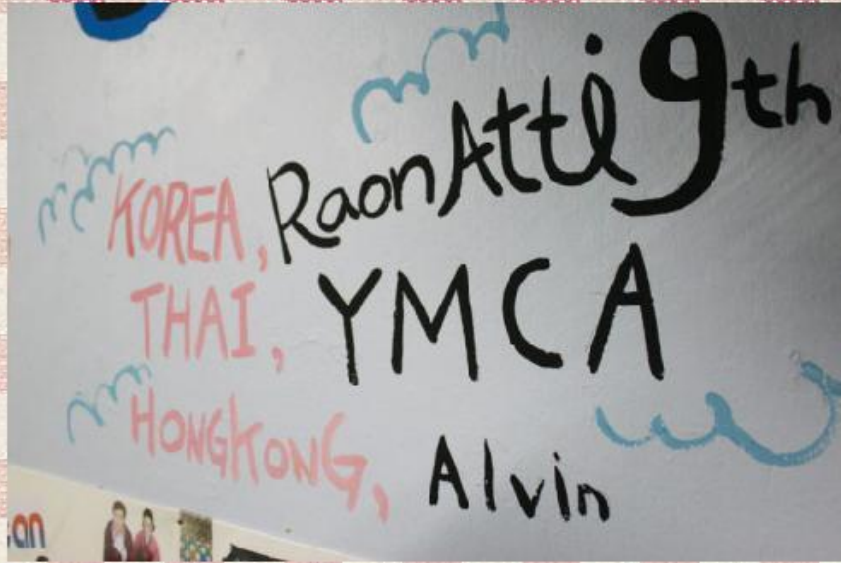 KOREA, RaonAtti 9th
THAI, YMCA
HONGKONG, Alvin
an